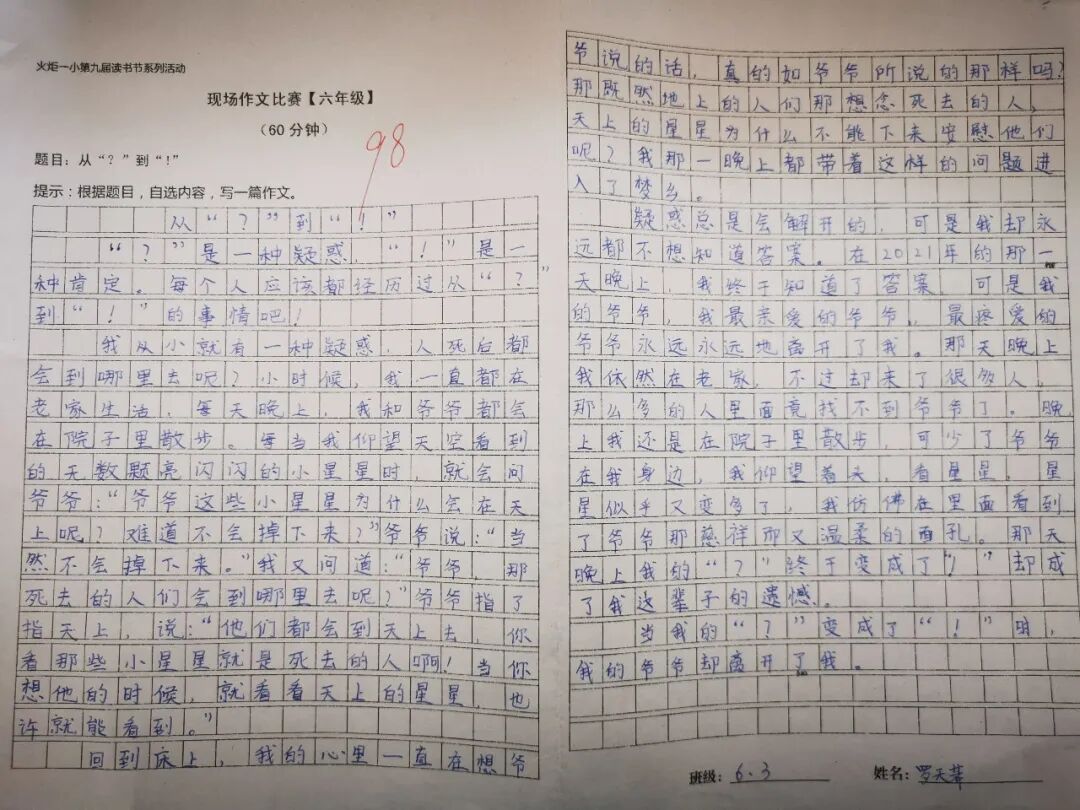 火炬一小第九届读书节系列活动
现场作文比赛【六年级】
（60分钟）
98
题目：从“？”到“！”
提示：根据题目，自选内容，写一篇作文。
从“？”到“！”
“？”是一种疑惑，“！”是一
种肯定。每个人应该都经历过从“？”
到“！”的事情吧！
我从小就有一种疑惑，人死后都
会到哪里去呢？小时候，我一直都在
老家生活，每天晚上，我和爷爷都会
在院子里散步。每当我仰望天空看到
的无数颗亮闪闪的小星星时，就会问
爷爷：“爷爷这些小星星为什么会在天
上呢？难道不会掉下来？”爷爷说：“当
然不会掉下来。”我又问道：“爷爷，那
死去的人们会到哪里去呢？”爷爷指了
指天上，说：“他们都会到天上去，你
看那些小星星就是死去的人啊！当你
想他的时候，就看看天上的星星，也
许就能看到。”
回到床上，我的心里一直在想爷
爷说的话，真的如爷爷所说的那样吗？
那既然地上的人们那想念死去的人，
天上的星星为什么不能下来安慰他们
呢？我那一晚上都带着这样的问题进
入了梦乡。
疑惑总是会解开的，可是我却永
远都不想知道答案。在2021年的那一
天晚上，我终于知道了答案，可是我
的爷爷，我最亲爱的爷爷，最疼爱的
爷爷永远永远地离开了我。那天晚上
我依然在老家，不过却来了很多人，
那么多的人里面竟找不到爷爷了。晚
上我还是在院子里散步，可少了爷爷
在我身边，我仰望着天，看星星，星
星似乎又变多了，我仿佛在里面看到
了爷爷那慈祥而又温柔的面孔。那天
晚上我的“？”终于变成了“！”却成
了我这辈子的遗憾。
当我的“？”变成了“！”时，
我的爷爷却离开了我。
班级：6.3 姓名：罗天